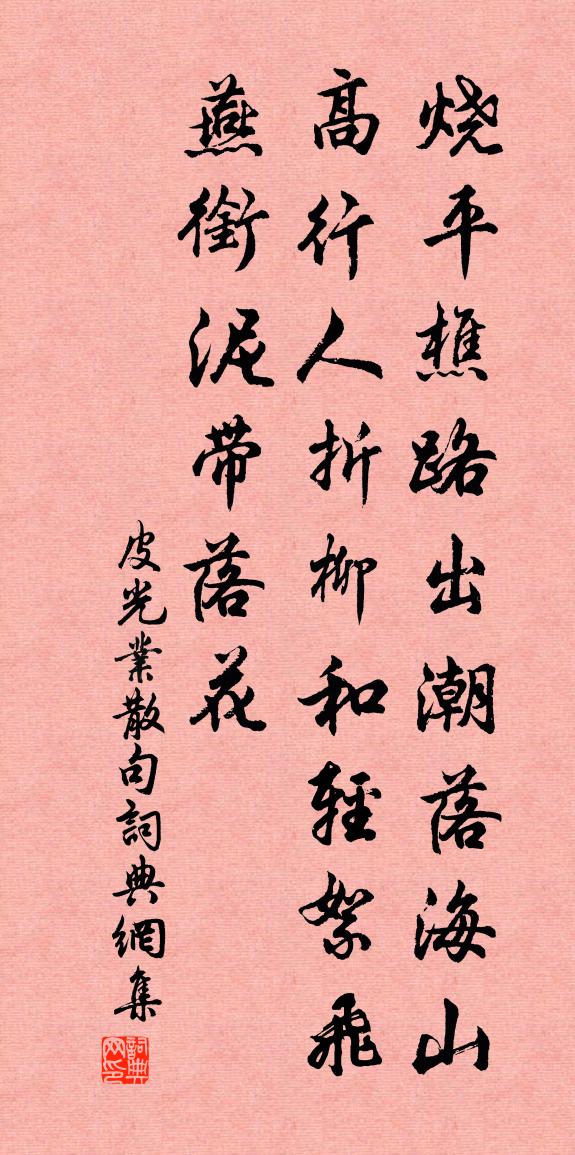 烧平樵路出潮落海山
高行人折柳和輕絮飛
燕銜泥带落花
皮光業散句詞典網集
詞典网印